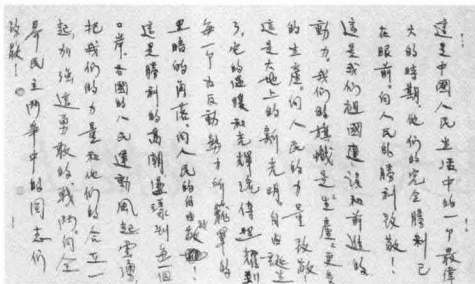 这是中國人民生活中的一个最偉
大的時期，他們的完全勝利已
在眼前。向人民的勝利致敬！
這是我们祖國建設和前進的
動力。我們的旗幟是生產，更多
的生產。向人民的力量致敬！
這是大地上的新光明。自由誕生
了，它的温暖和光輝流傳照耀到
每一个为反動勢力所籠罩的
黑暗的角落。向人民的自由致敬！
這是勝利的高潮，遍到每一個
口岸，各國的人民運動風起雲湧，
把我们的力量和他們的合在一
起，加强這勇敢的戰鬥。向全
世界民主鬥争中的同志们
致敬！